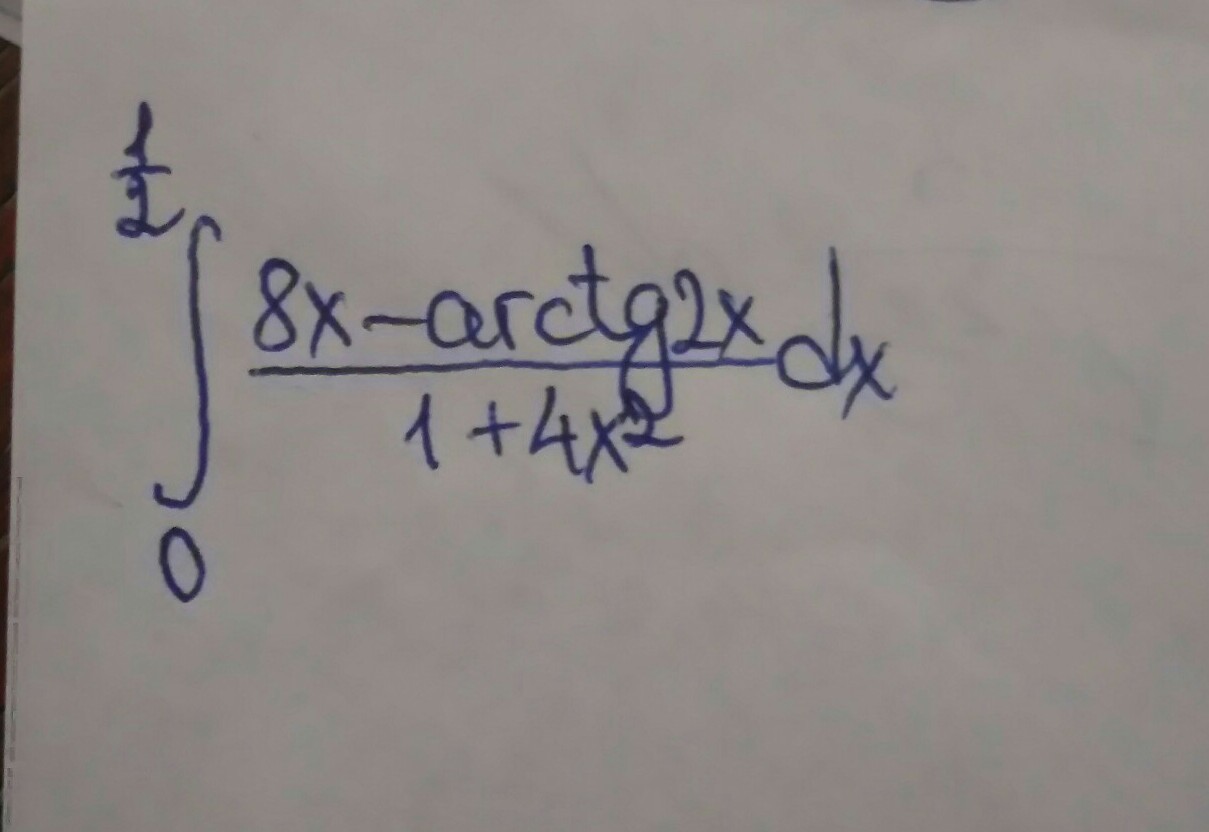 1/2
∫ (8x - arctg2x)/(1 + 4x²) dx
0